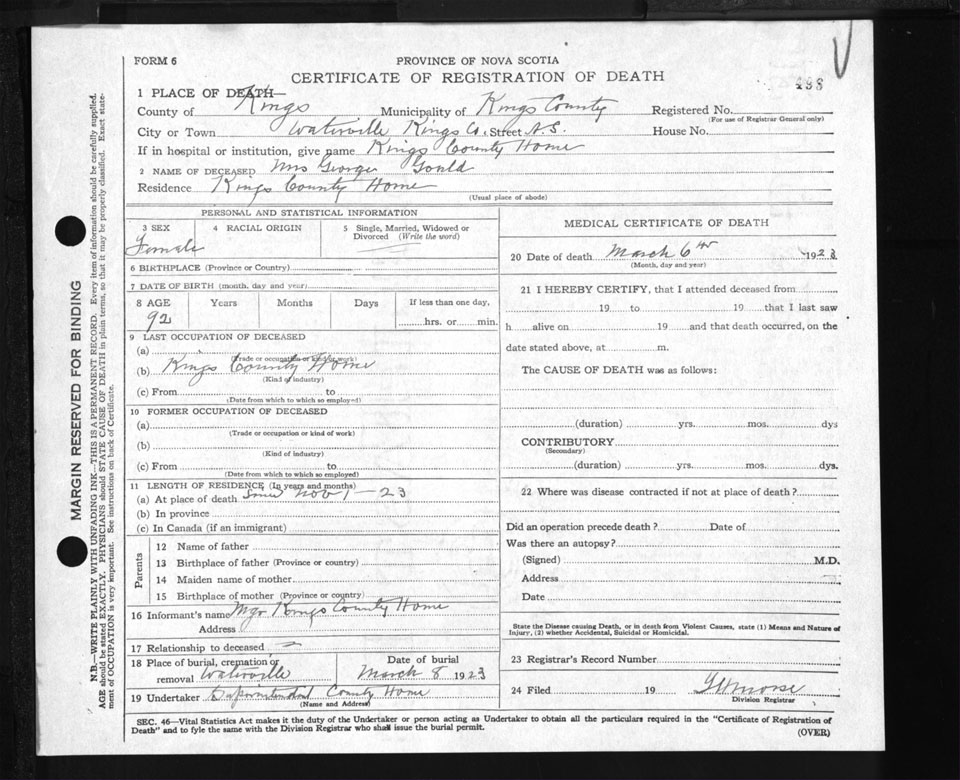 FORM 6
PROVINCE OF NOVA SCOTIA
CERTIFICATE OF REGISTRATION OF DEATH
498
1 PLACE OF DEATH—
County of Kings Municipality of Kings County Registered No.
(For use of Registrar General only)
City or Town Waterville Kings Co. Street N.S. House No.
If in hospital or institution, give name Kings County Home
2 NAME OF DECEASED Mrs George Gould
Residence Kings County Home
(Usual place of abode)
PERSONAL AND STATISTICAL INFORMATION
3 SEX 4 RACIAL ORIGIN 5 Single, Married, Widowed or Divorced (Write the word)
Female
6 BIRTHPLACE (Province or Country)
7 DATE OF BIRTH (month, day and year)
8 AGE Years Months Days If less than one day,
92 hrs. or min.
9 LAST OCCUPATION OF DECEASED
(a)
(Trade or occupation or kind of work)
(b) Kings County Home
(Kind of industry)
(c) From to
(Date from which to which so employed)
10 FORMER OCCUPATION OF DECEASED
(a)
(Trade or occupation or kind of work)
(b)
(Kind of industry)
(c) From to
(Date from which to which so employed)
11 LENGTH OF RESIDENCE (In years and months)
(a) At place of death Since Nov 1 - 23
(b) In province
(c) In Canada (if an immigrant)
Parents
12 Name of father
13 Birthplace of father (Province or country)
14 Maiden name of mother
15 Birthplace of mother (Province or country)
16 Informant's name Mgr Kings County Home
Address
17 Relationship to deceased
18 Place of burial, cremation or removal Waterville Date of burial March 8 1923
19 Undertaker Superintendent County Home
(Name and Address)
MEDICAL CERTIFICATE OF DEATH
20 Date of death March 6th 1923
(Month, day and year)
21 I HEREBY CERTIFY, that I attended deceased from
19 to 19 that I last saw
h alive on 19 and that death occurred, on the
date stated above, at m.
The CAUSE OF DEATH was as follows:
(duration) yrs. mos. dys
CONTRIBUTORY
(Secondary)
(duration) yrs. mos. dys.
22 Where was disease contracted if not at place of death?
Did an operation precede death? Date of
Was there an autopsy?
(Signed) M.D.
Address
Date
State the Disease causing Death, or in death from Violent Causes, state (1) Means and Nature of
Injury, (2) whether Accidental, Suicidal or Homicidal.
23 Registrar's Record Number
24 Filed 19 Morse
Division Registrar
SEC. 46—Vital Statistics Act makes it the duty of the Undertaker or person acting as Undertaker to obtain all the particulars required in the "Certificate of Registration of
Death" and to fyle the same with the Division Registrar who shall issue the burial permit.
(OVER)
MARGIN RESERVED FOR BINDING
N.B.—WRITE PLAINLY WITH UNFADING INK—THIS IS A PERMANENT RECORD. Every item of information should be carefully supplied.
AGE should be stated EXACTLY. PHYSICIANS should STATE CAUSE OF DEATH in plain terms, so that it may be properly classified. Exact state-
ment of OCCUPATION is very important. See instructions on back of Certificate.